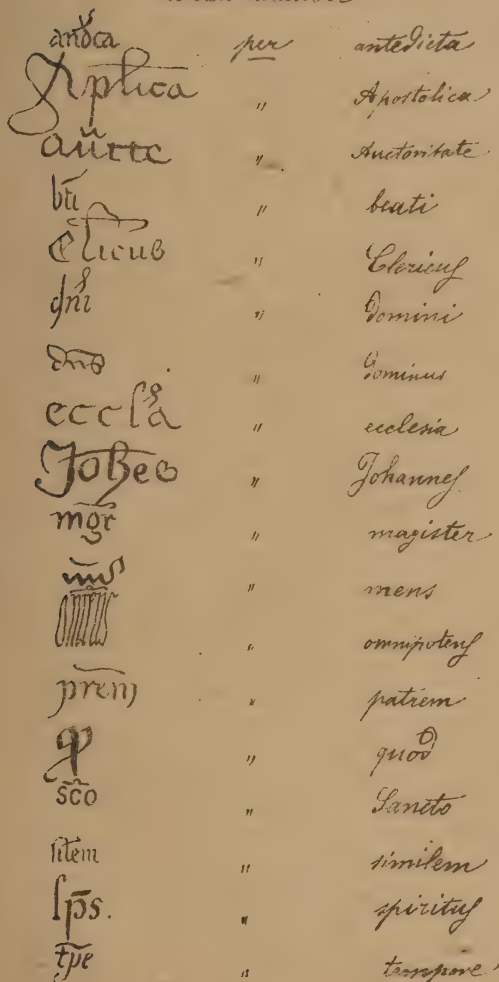 andca per antedicta
Aplica " Apostolica
aucte " Auctoritate
bti " beati
Clicus " Clericus
dni " Domini
dns " Dominus
eccla " ecclesia
Johes " Johannes
mgr " magister
" mens
" omnipotens
prem " patrem
" quod
sco " Sancto
silem " similem
sps. " spiritus
tpe " tempore